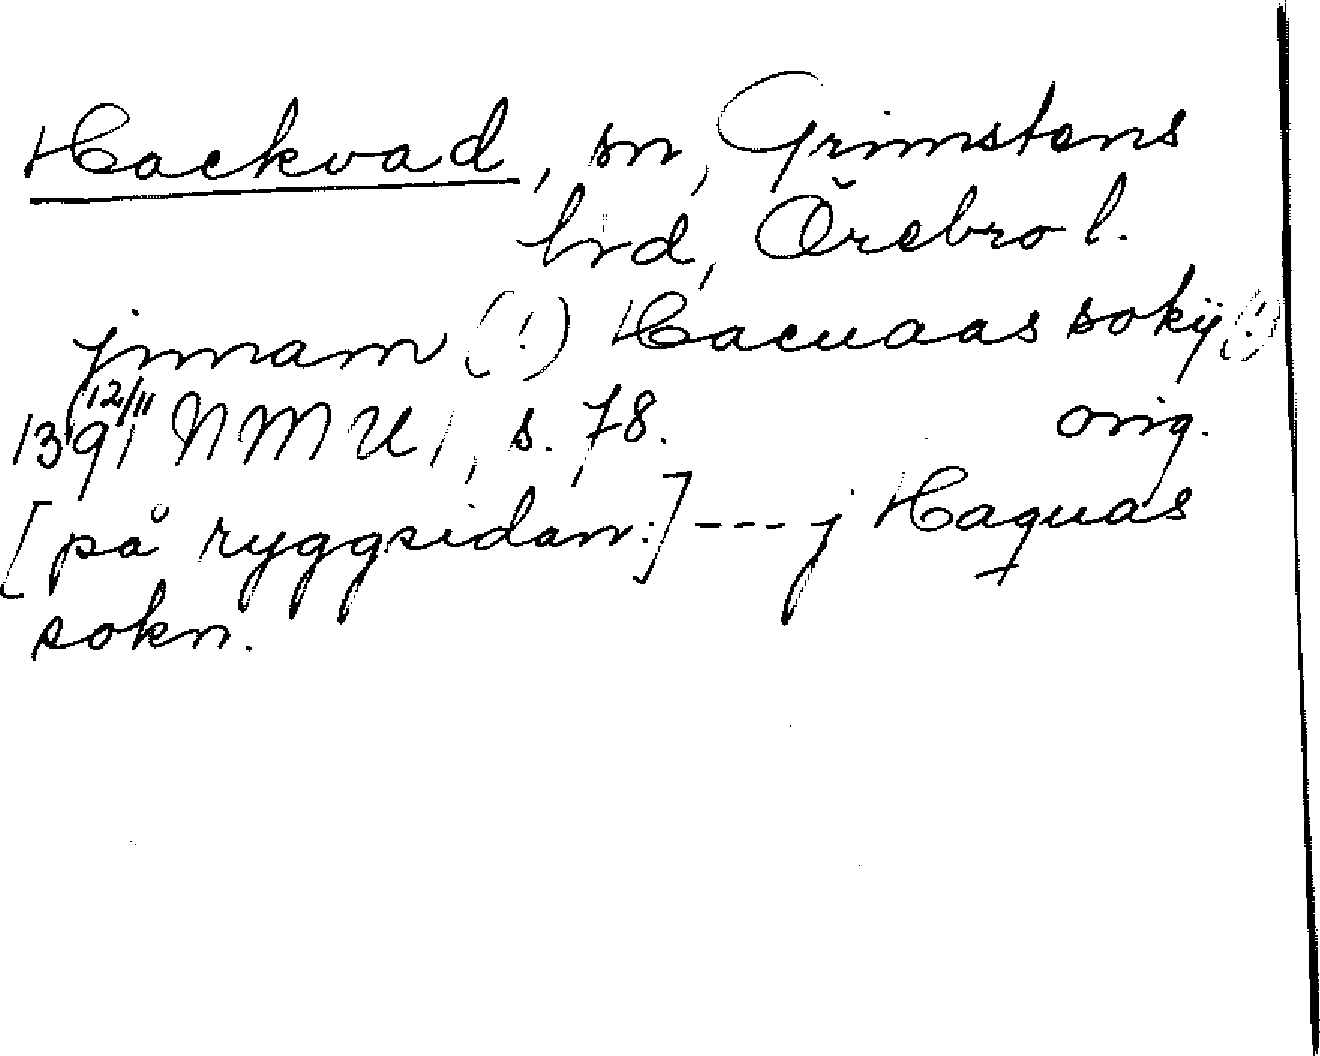 Hackvad, sn, Grimstens
hrd, Örebro l.
jnnam (!) Hacuaas sokij (!)
1391 12/11 NMU 1, s. 78. orig.
[på ryggsidan:] --- j Haquas
sokn.